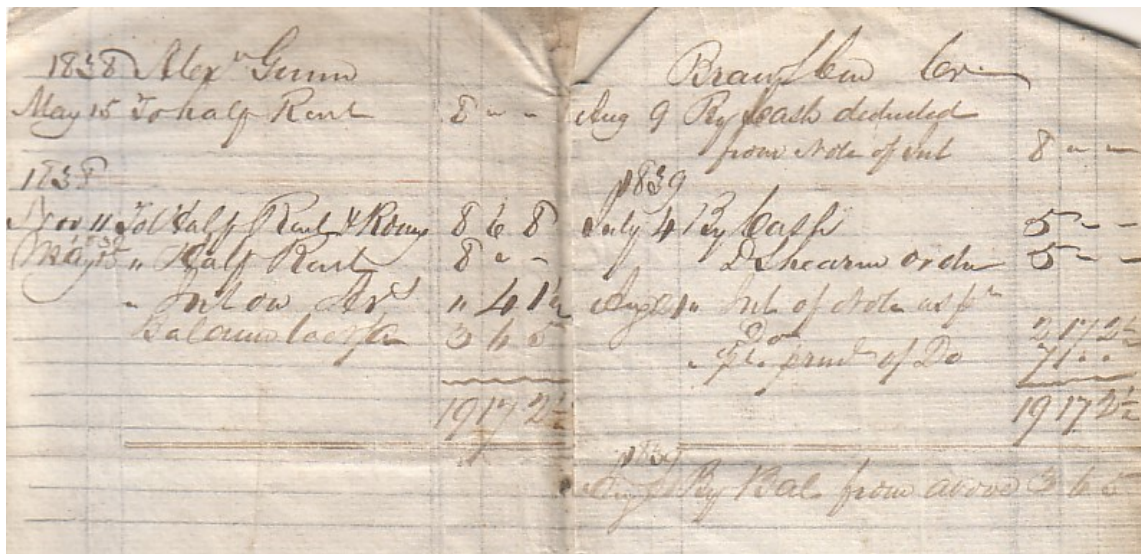 1838 Alexr Gunn
May 15 To half Rent 8 " "
1838
Nov 11 To Half Rent & 8 6 8
1839
May 15 " Half Rent 8 " "
" Int on " 4 1½
Balance 3 6 5
19 17 2½
Cr
Aug 9 By Cash deducted
from Note of Int 8 " "
1839
July 4 By Cash 5 " "
D Shearer order 5 " "
Aug " Int of Note as pr
Do 2 17 2½
" of Do 7 " "
19 17 2½
1839
Aug By Bal from above 3 6 5